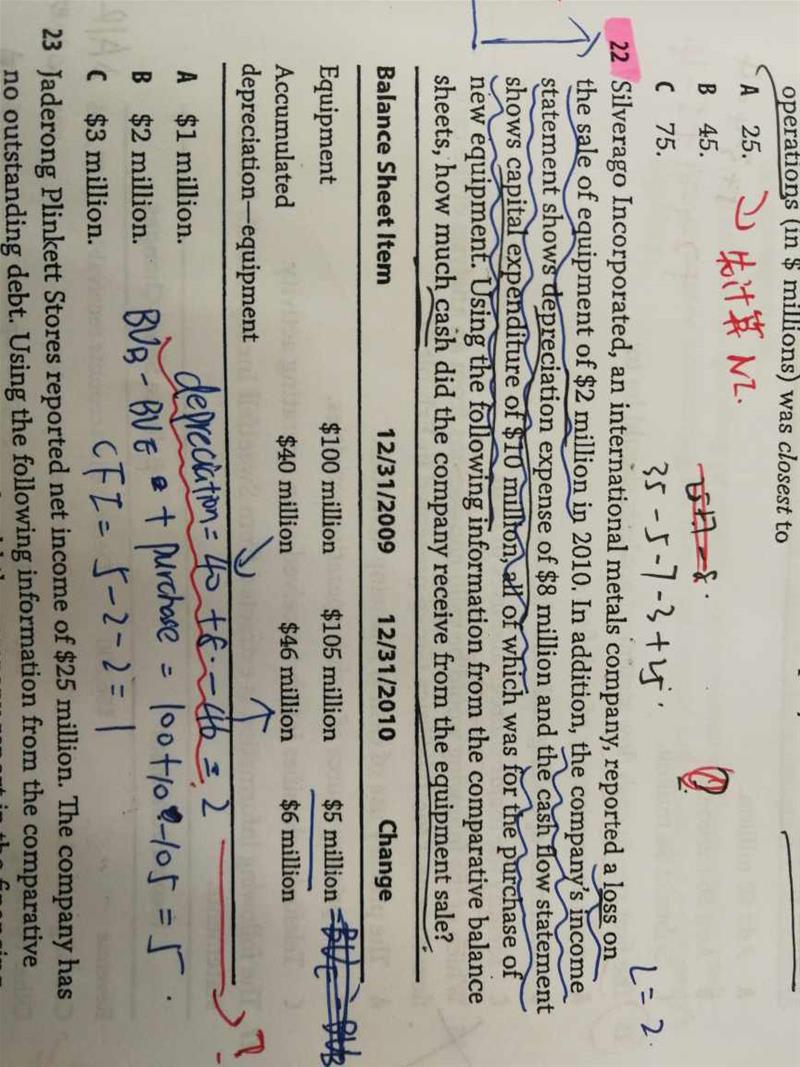 operations (in $ millions) was closest to
A 25.
B 45.
C 75.
先计算 NI.
35-5-7-3+45.
22 Silverago Incorporated, an international metals company, reported a loss on
the sale of equipment of $2 million in 2010. In addition, the company's income
statement shows depreciation expense of $8 million and the cash flow statement
shows capital expenditure of $10 million, all of which was for the purchase of
new equipment. Using the following information from the comparative balance
sheets, how much cash did the company receive from the equipment sale?
L=2.
Balance Sheet Item 12/31/2009 12/31/2010 Change
Equipment $100 million $105 million $5 million
Accumulated
depreciation—equipment $40 million $46 million $6 million
A $1 million.
B $2 million.
C $3 million.
depreciation = 40 +8 - 46 = 2 ?
BVB - BVE + purchase = 100+10-105 = 5.
CFI = 5-2-2= 1
23 Jaderong Plinkett Stores reported net income of $25 million. The company has
no outstanding debt. Using the following information from the comparative